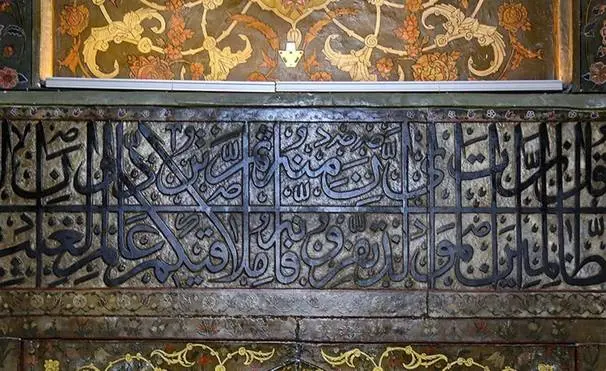 بالظالمين قل ان الموت الذي تفرون منه فانه ملاقيكم ثم تردون الى عالم الغيب